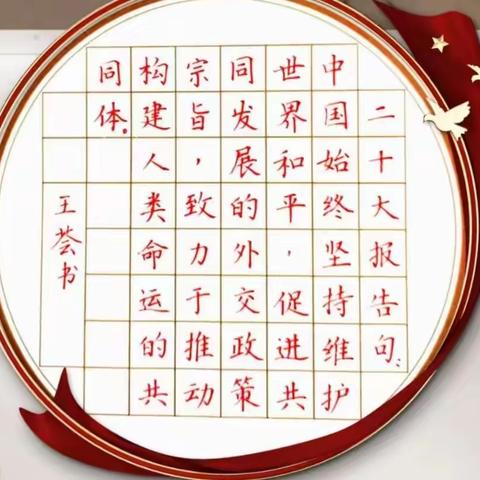 二十大报告句：
中国始终坚持维护
世界和平，促进共
同发展的外交政策
宗旨，致力于推动
构建人类命运的共
同体。
王荟书